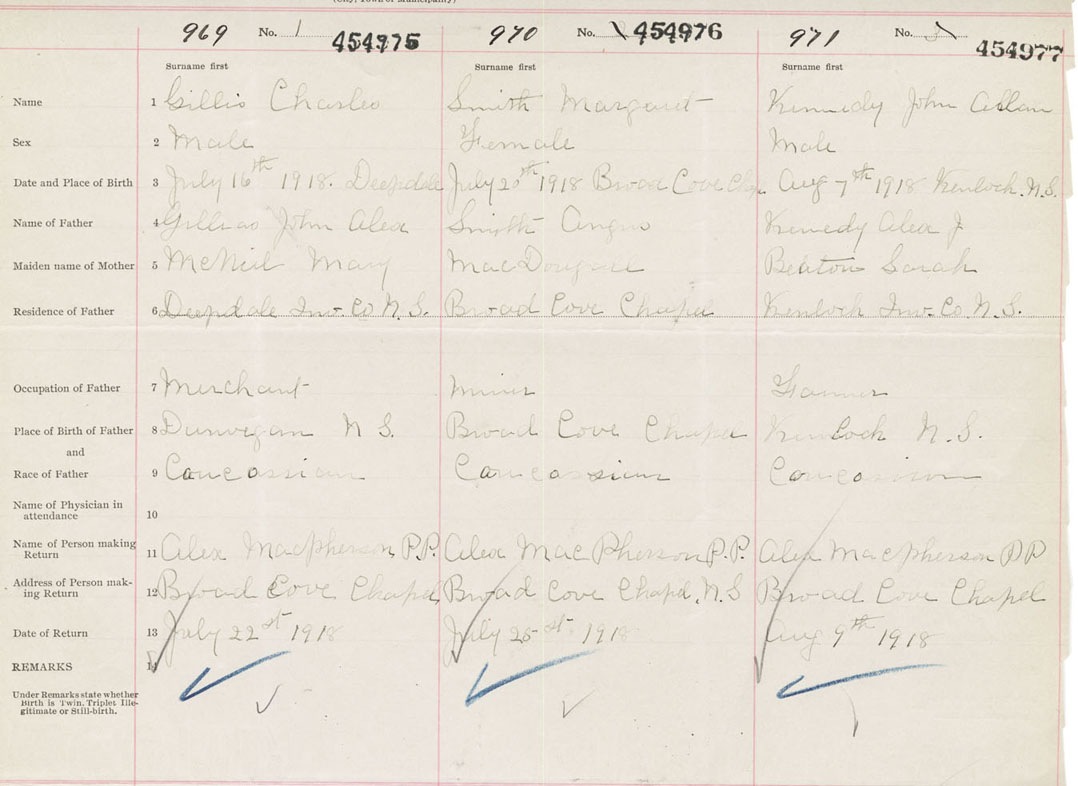 (City, Town or Municipality)
969 No. 1 454975 970 No. 454976 971 No. 454977
Surname first Surname first Surname first
Name 1 Gillis Charles Smith Margaret Kennedy John Allan
Sex 2 Male Female Male
Date and Place of Birth 3 July 16th 1918. Deepdale July 20th 1918 Broad Cove Aug 7th 1918 Kenlock. N.S.
Name of Father 4 John Alex Smith Angus Kennedy Alex J
Maiden name of Mother 5 McNeil Mary MacDougall Beaton Sarah
Residence of Father 6 Deepdale Inv. Co N.S. Broad Cove Chapel Kenlock Inv. Co. N.S.
Occupation of Father 7 Merchant miner Farmer
Place of Birth of Father 8 Dunvegan N S. Broad Cove Chapel Kenlock N.S.
and
Race of Father 9 Caucassian Caucassian Caucassian
Name of Physician in
attendance 10
Name of Person making
Return 11 Alex Macpherson P.P. Alex MacPherson P.P. Alex Macpherson PP
Address of Person mak-
ing Return 12 Broad Cove Chapel Broad Cove Chapel, N.S Broad Cove Chapel
Date of Return 13 July 22st 1918 July 1918 Aug 9th 1918
REMARKS 14
Under Remarks state whether
Birth is Twin. Triplet Ille-
gitimate or Still-birth.